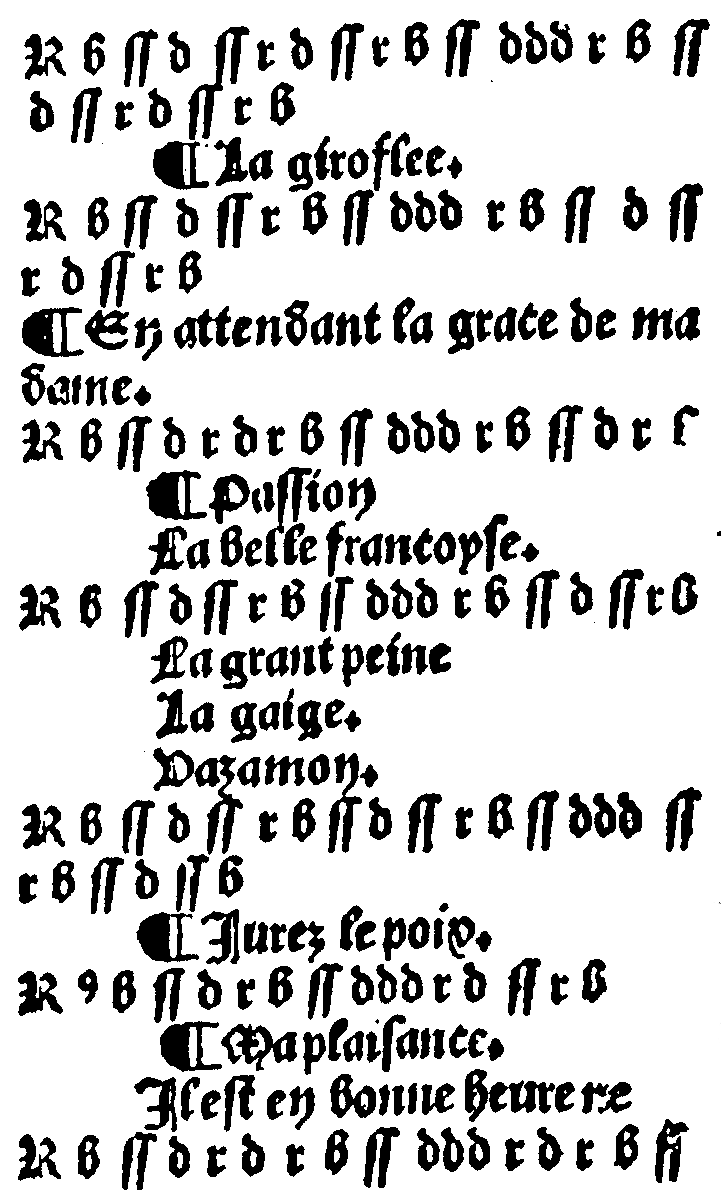 R b ſſ d ſſ r d ſſ r b ſſ ddd r b ſſ
d ſſ r d ſſ r b
¶ La giroflee.
R b ſſ d ſſ r b ſſ ddd r b ſſ d ſſ
r d ſſ r b
¶ En attendant la grace de ma
dame.
R b ſſ d r d r b ſſ ddd r b ſſ d r ſ
¶ Paſſion
La belle francoyſe.
R b ſſ d ſſ r b ſſ ddd r b ſſ d ſſ r b
La grant peine
La gaige.
Vazamon.
R b ſſ d ſſ r b ſſ d ſſ r b ſſ ddd ſſ
r b ſſ d ſſ b
¶ Jurez le poix.
R 9 b ſſ d r b ſſ ddd r d ſſ r b
¶ Ma plaiſance.
Il eſt en bonne heure ne
R b ſſ d r d r b ſſ ddd r d r b ſſ